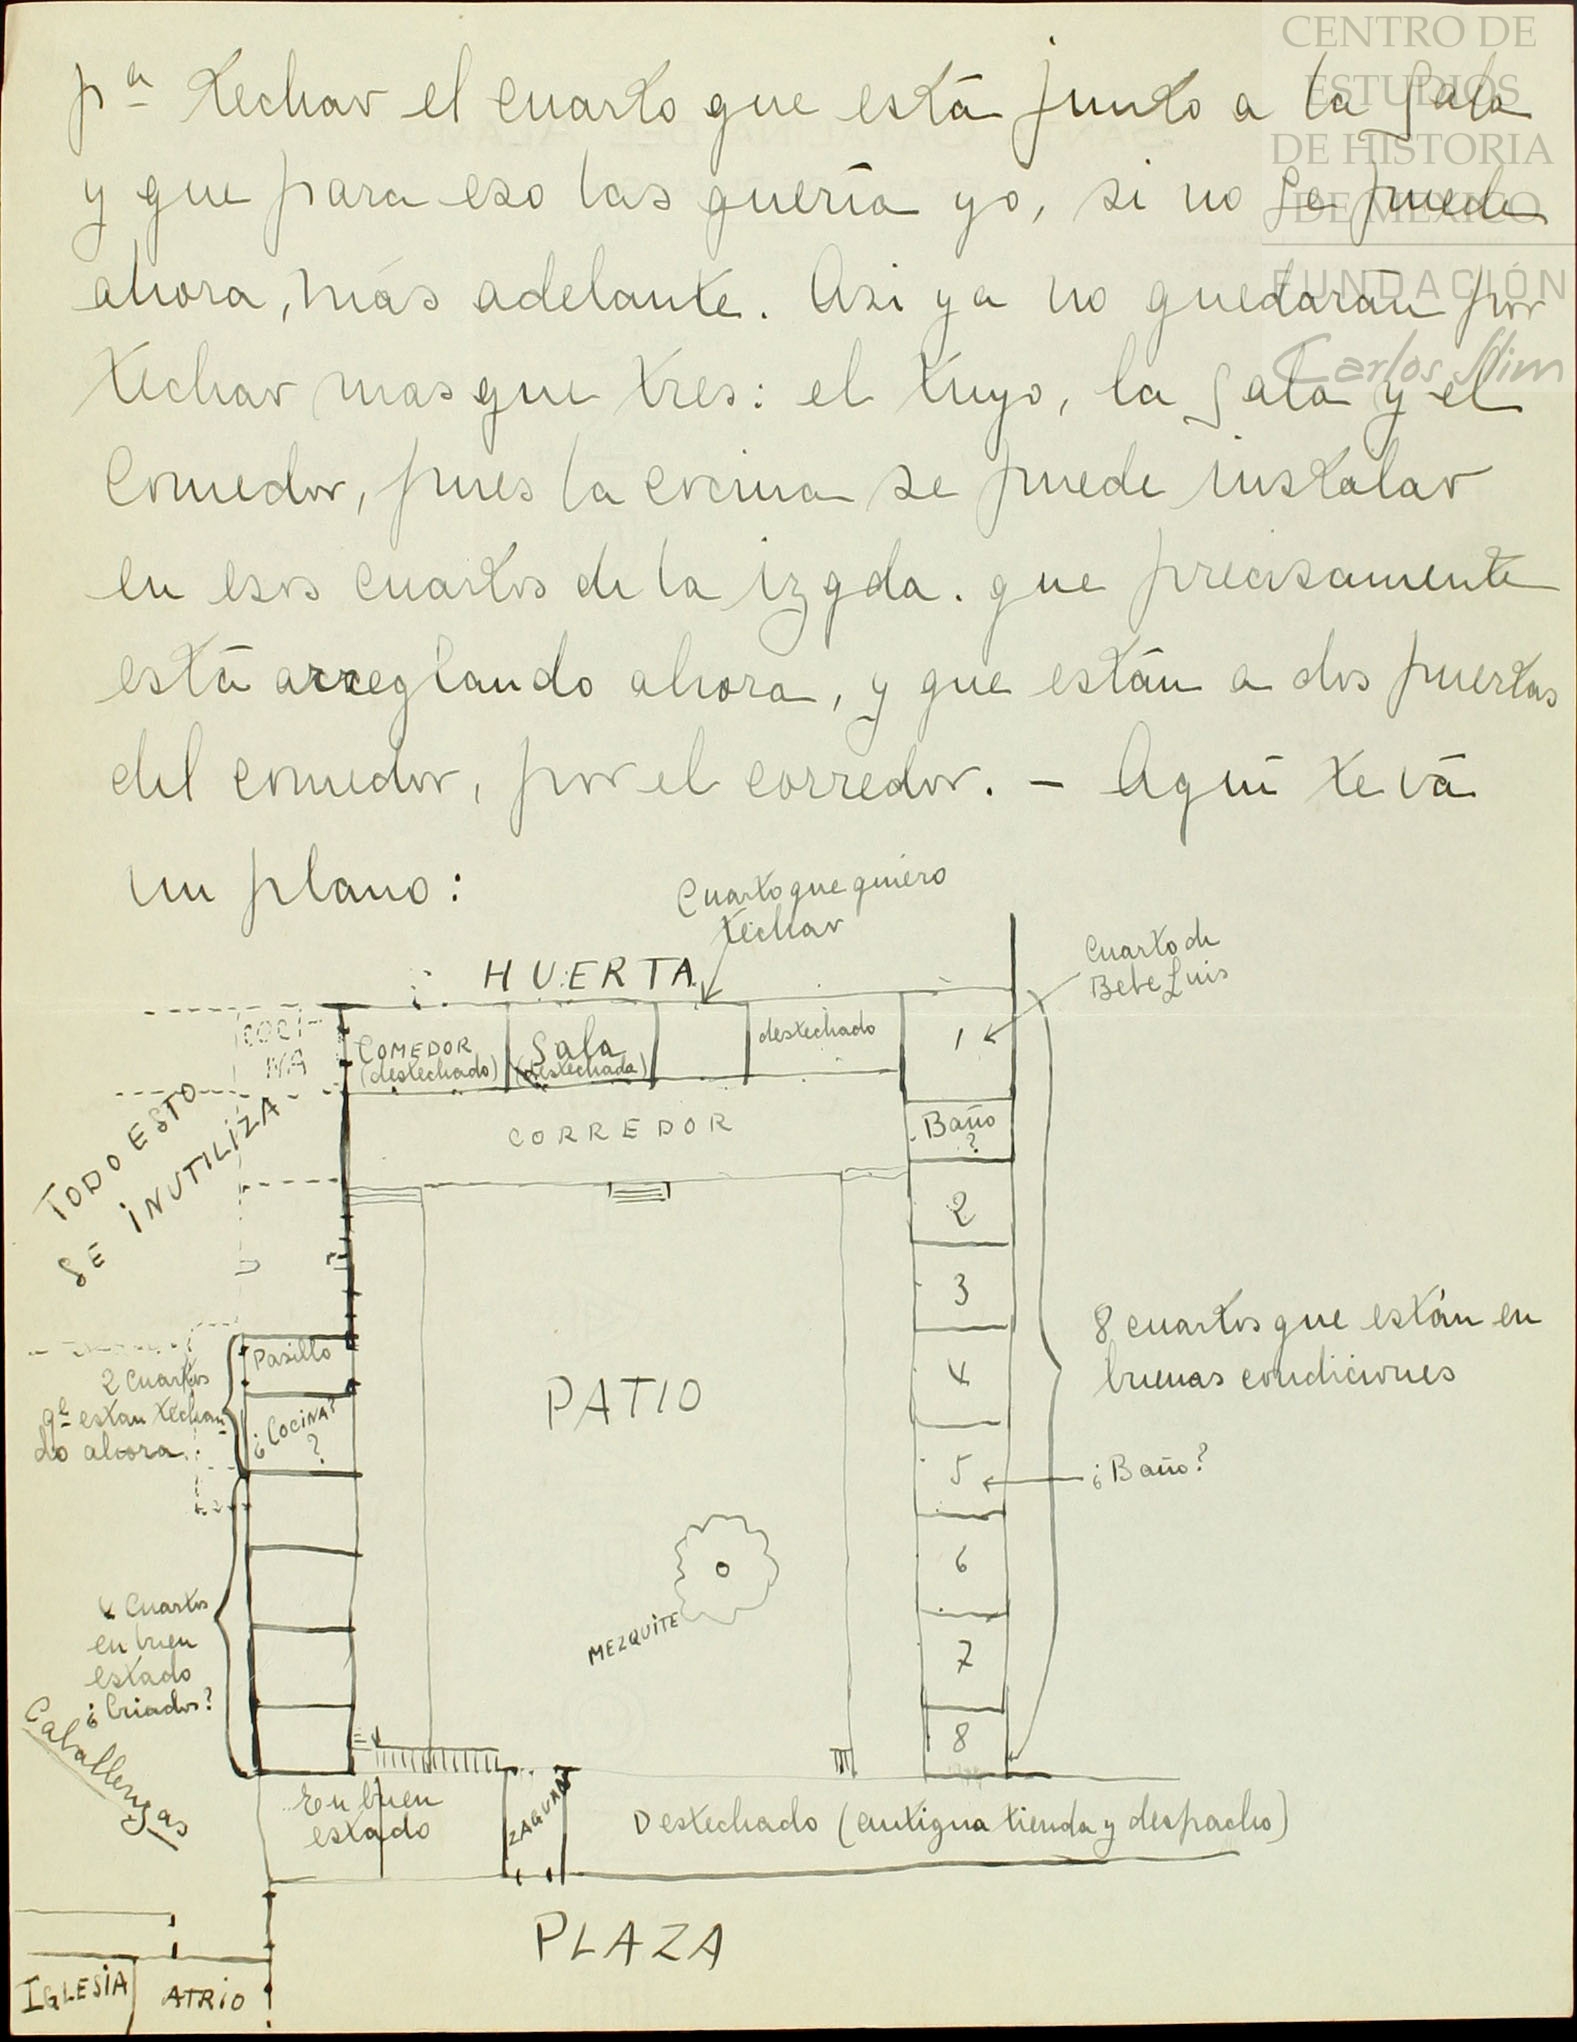 CENTRO DE
ESTUDIOS
DE HISTORIA
DE MÉXICO
FUNDACIÓN
Carlos Slim
pª techar el cuarto que está junto a la Sala
y que para eso las quería yo, si no se puede
ahora, más adelante. Asi ya no quedarán por
techar mas que tres: el tuyo, la Sala y el
Comedor, pues la cocina se puede instalar
en esos cuartos de la izqda. que precisamente
está arreglando ahora, y que están a dos puertas
del comedor, por el corredor. - Aquí te vá
un plano:
Cuarto que quiero
techar
HUERTA
Cuarto de
Bebe Luis
COCI-
NA
COMEDOR
(destechado)
Sala
(destechada)
destechado
1
TODO ESTO
SE INUTILIZA
CORREDOR
Baño
?
2
3
4
5
6
7
8
8 cuartos que están en
buenas condiciones
¿Baño?
Pasillo
2 Cuartos
qᵉ estan techan-
do ahora.
¿COCINA?
?
PATIO
MEZQUITE
4 Cuartos
en buen
estado
¿Criados?
Caballerizas
En buen
estado
ZAGUAN
Destechado (antigua tienda y despacho)
PLAZA
IGLESIA
ATRIO